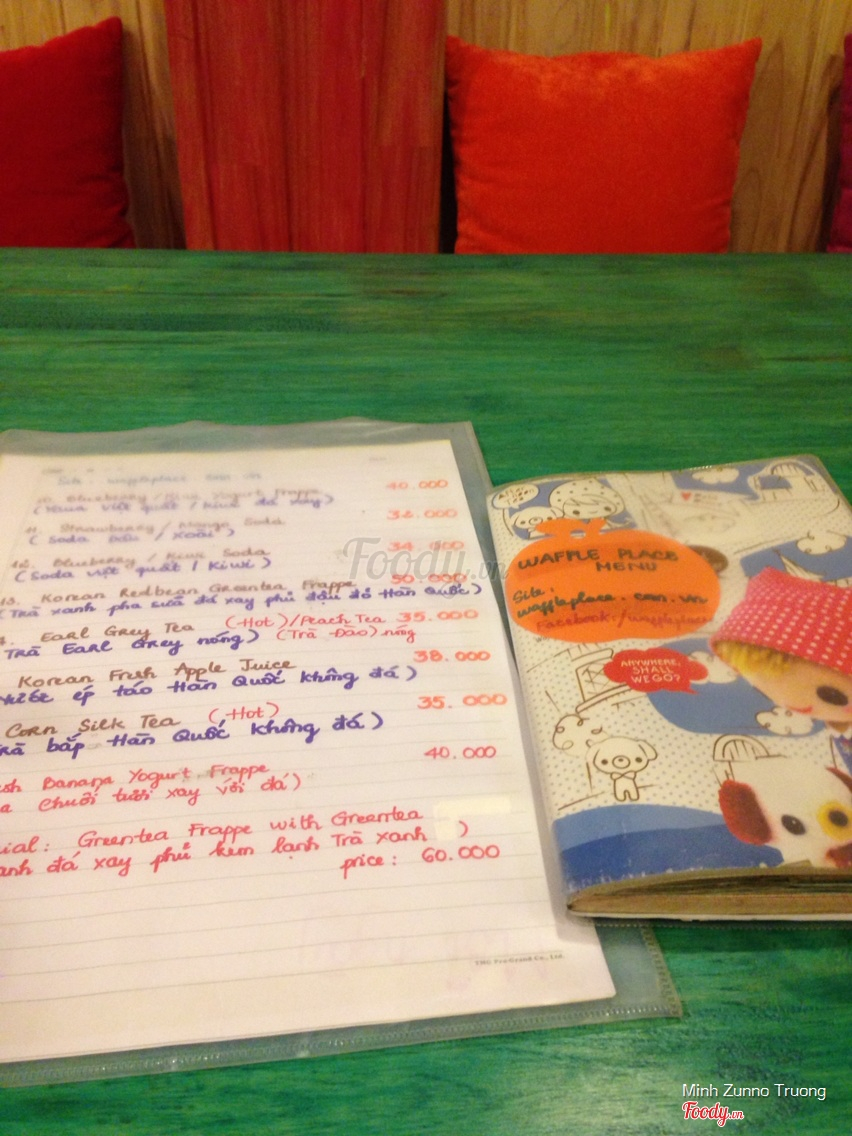 Site: waffleplace.com.vn
10. Blueberry / Kiwi Yogurt Frappe 40.000
(Yaua việt quất / kiwi đá xay)
11. Strawberry / Mango Soda
(Soda Dâu / Xoài)
12. Blueberry / Kiwi Soda
(Soda việt quất / Kiwi)
13. Korean Redbean Greentea Frappe 50.000
(Trà xanh pha sữa đá xay phủ đậu đỏ Hàn Quốc)
Earl Grey Tea (Hot) / Peach Tea 35.000
Trà Earl Grey nóng) (Trà Đào) nóng
Korean Fresh Apple Juice 38.000
ép táo Hàn Quốc không đá)
Corn Silk Tea (Hot) 35.000
bắp Hàn Quốc không đá)
Banana Yogurt Frappe 40.000
chuối tươi xay với đá)
Greentea Frappe with Greentea
đá xay phủ kem lạnh Trà xanh )
price: 60.000
WAFFLE PLACE
MENU
Site:
waffleplace.com.vn
Facebook:/waffleplace
ANYWHERE,
SHALL
WE GO?
Foody.vn
Minh Zunno Truong
Foody.vn